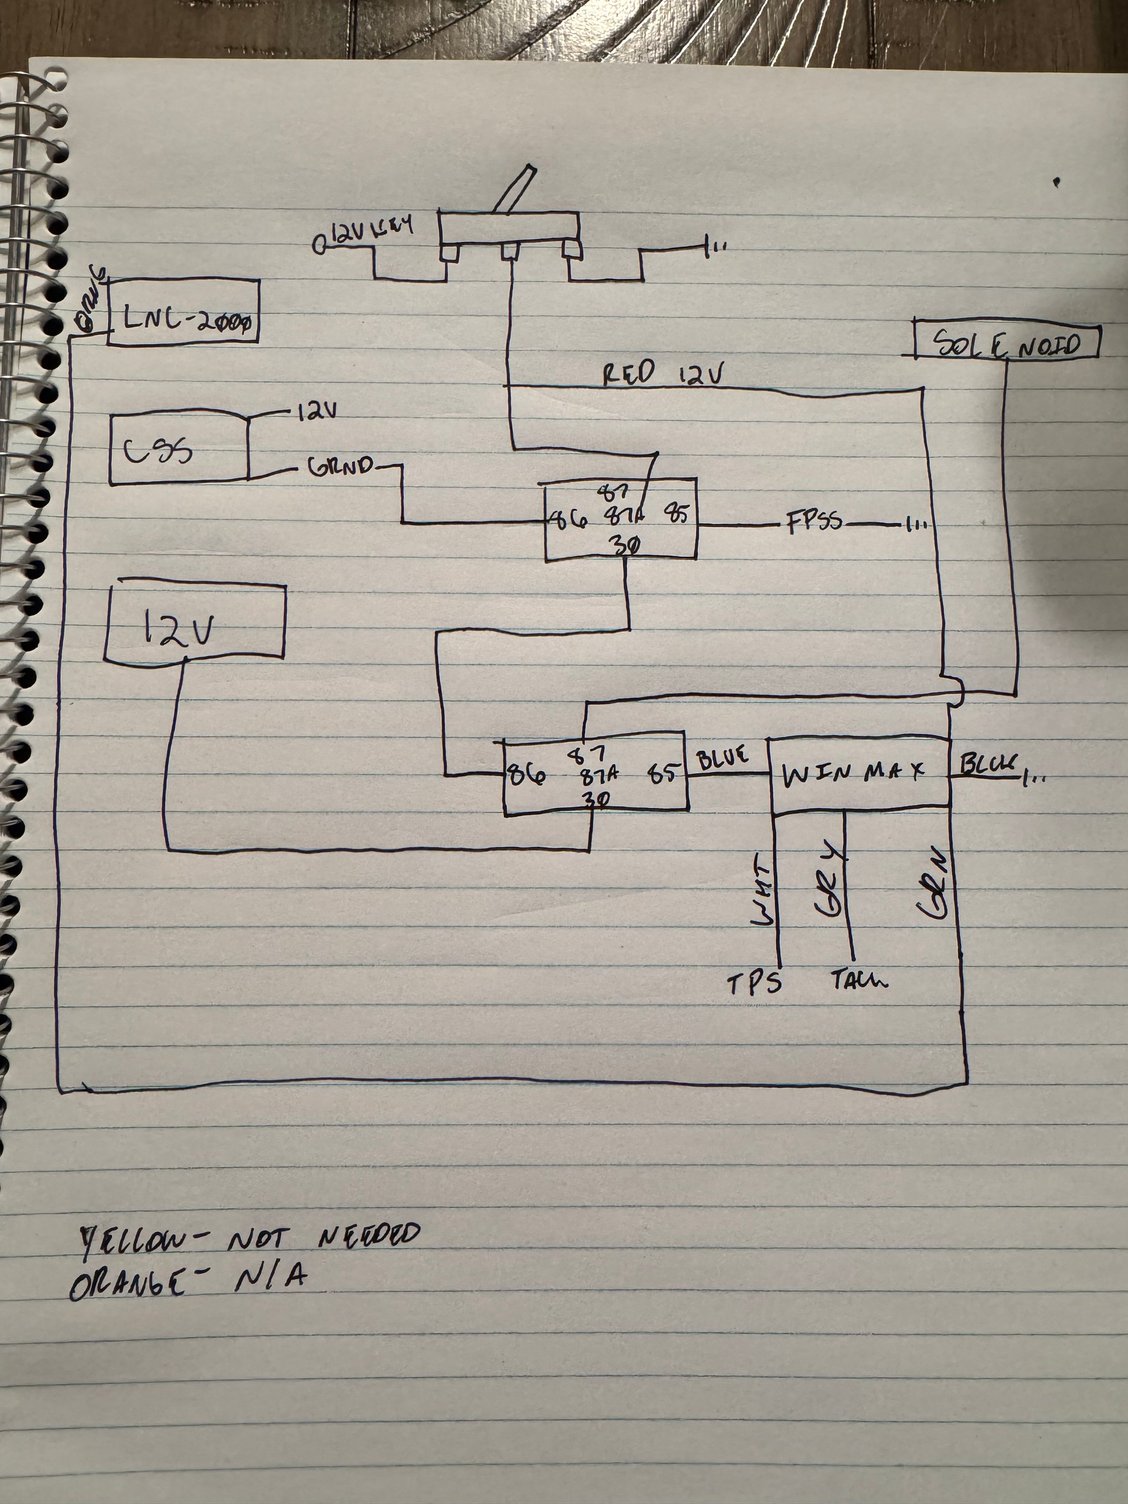 12V KEY
ORNG
LNC-2000
SOLENOID
RED 12V
12V
CSS
GRND
87
86 87A 85
30
FPSS
12V
87
86 87A 85
30
BLUE
WINMAX
BLCK
WHT
GRY
GRN
TPS
TACH
YELLOW- NOT NEEDED
ORANGE- N/A